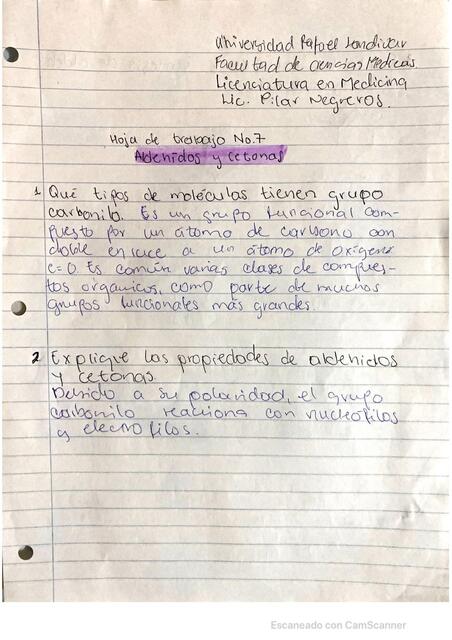 Universidad Rafael Landívar
Facultad de Ciencias Médicas
Licenciatura en Medicina
Lic. Pilar Negreros.
Hoja de trabajo No.7
Aldehídos y cetonas
1. Qué tipos de moléculas tienen grupo
carbonilo. Es un grupo funcional com-
puesto por un átomo de carbono con
doble enlace a un átomo de oxígeno
c=O. Es común varias clases de compues-
tos orgánicos, como parte de muchos
grupos funcionales más grandes.
2. Explique las propiedades de aldehídos
y cetonas.
Debido a su polaridad, el grupo
carbonilo reacciona con nucleófilos
y electrófilos.
Escaneado con CamScanner